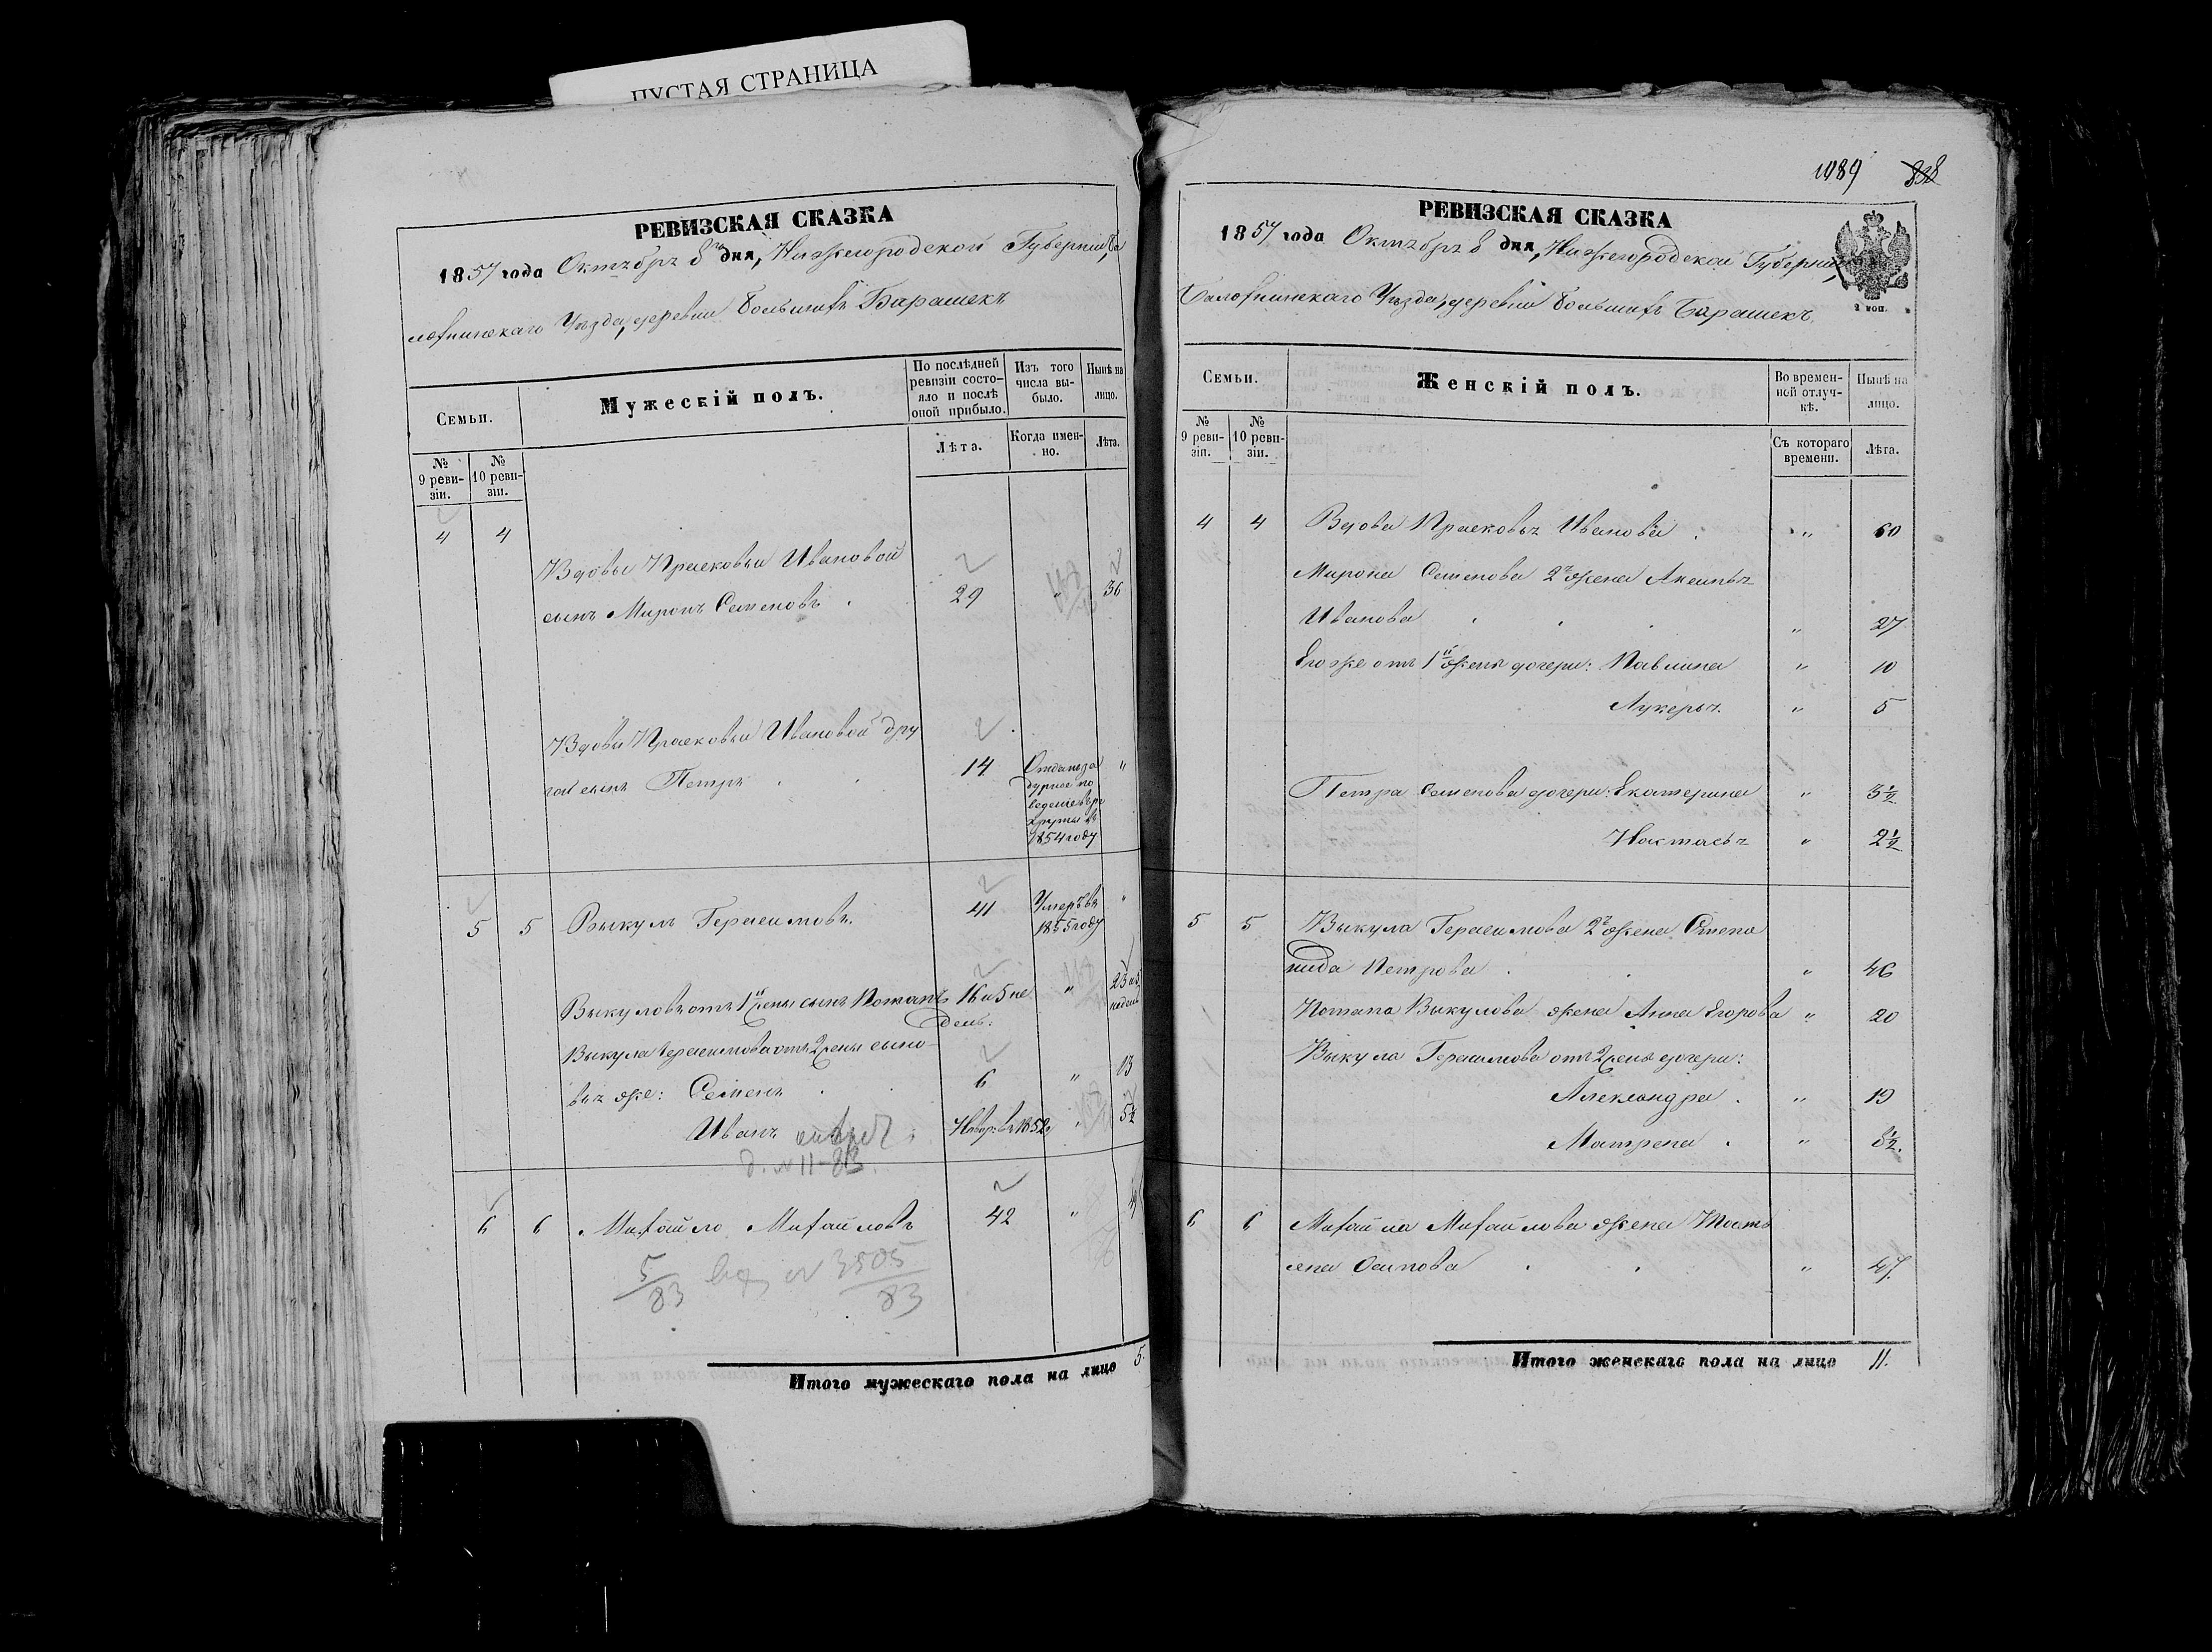 ПУСТАЯ СТРАНИЦА
РЕВИЗСКАЯ СКАЗКА
1857 года Октября 8го дня, Нижегородской Губернии, Ба
лахнинскаго Уезда, деревни Большихъ Барашекъ
Семьи.
Мужескій полъ.
По послѣдней ревизіи состо-
яло и послѣ
оной прибыло.
Изъ того
числа вы-
было.
Нынѣ на
лицо.
№
9 реви-
зіи.
№
10 реви-
зіи.
Лѣта.
Когда имен-
но.
Лѣта.
4 4
Вдовы Прасковьи Ивановой
сынъ Миронъ Семеновъ . 29 " 36
Вдовы Прасковьи Ивановой дру
гой сынъ Петръ . . 14 Отданъ за "
дурное по
ведение въ ре
круты въ
1854 году
5 5 Выкулъ Герасимовъ. 41 Умеръ въ "
1855 году
Выкуловъ отъ 1й жены сынъ Потапъ 16 и 5 не " 23 и 5
дель: недель
Выкула Герасимова отъ 2 жены сыно-
вья же: Семенъ . 6 " 13
Иванъ Новор: въ 1852 " 5½
д. №11-83.
6 6 Михайло Михайловъ 42 "
5/83 № 3505/83
Итого мужескаго пола на лицо 5.
1089 838
РЕВИЗСКАЯ СКАЗКА
1857 года Октября 8 дня, Нижегородской Губернии,
Балахнинскаго Уезда, деревни Большихъ Барашекъ.
2 коп.
Семьи.
Женскій полъ.
Во времен-
ной отлуч-
кѣ.
Нынѣ на
лицо.
№
9 реви-
зіи.
№
10 реви-
зіи.
Съ котораго
времени.
Лѣта.
4 4 Вдова Прасковья Иванова . " 60
Мирона Семенова 2я жена Аксинья
Иванова . . . " 27
Его же отъ 1й жены дочери: Павлина " 10
Лукерья " 5
Петра Семенова дочери: Екатерина " 3½
Настасья " 2½
5 5 Выкула Герасимова 2я жена Степа
нида Петрова . . " 46
Потапа Выкулова жена Анна Егорова " 20
Выкула Герасимова отъ 2 жены дочери:
Александра . " 19
Матрена . " 8½.
6 6 Михайла Михайлова жена Татья
яна Осипова . . " 47.
Итого женскаго пола на лицо 11.